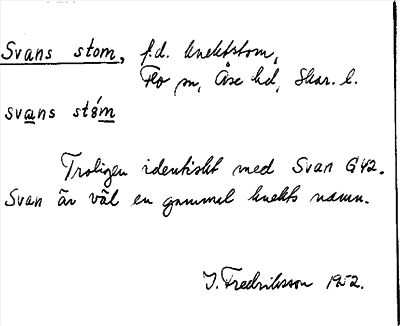 Svans stom, f.d. knektstom,
Flo sn, Åse hd, Skar. l.
svans stóm
Troligen identiskt med Svan G42.
Svan är väl en gammal knekts namn.
I. Fredriksson 1952.